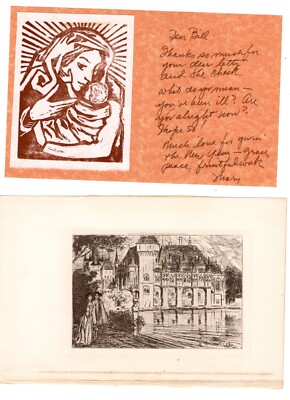 Dear Bill
Thanks so much for
your dear letter
and the check
what do you mean —
you've been ill? Are
you alright now?
Hope so
Much love for you in
the New Year — grace,
peace, fruitful work
Mary